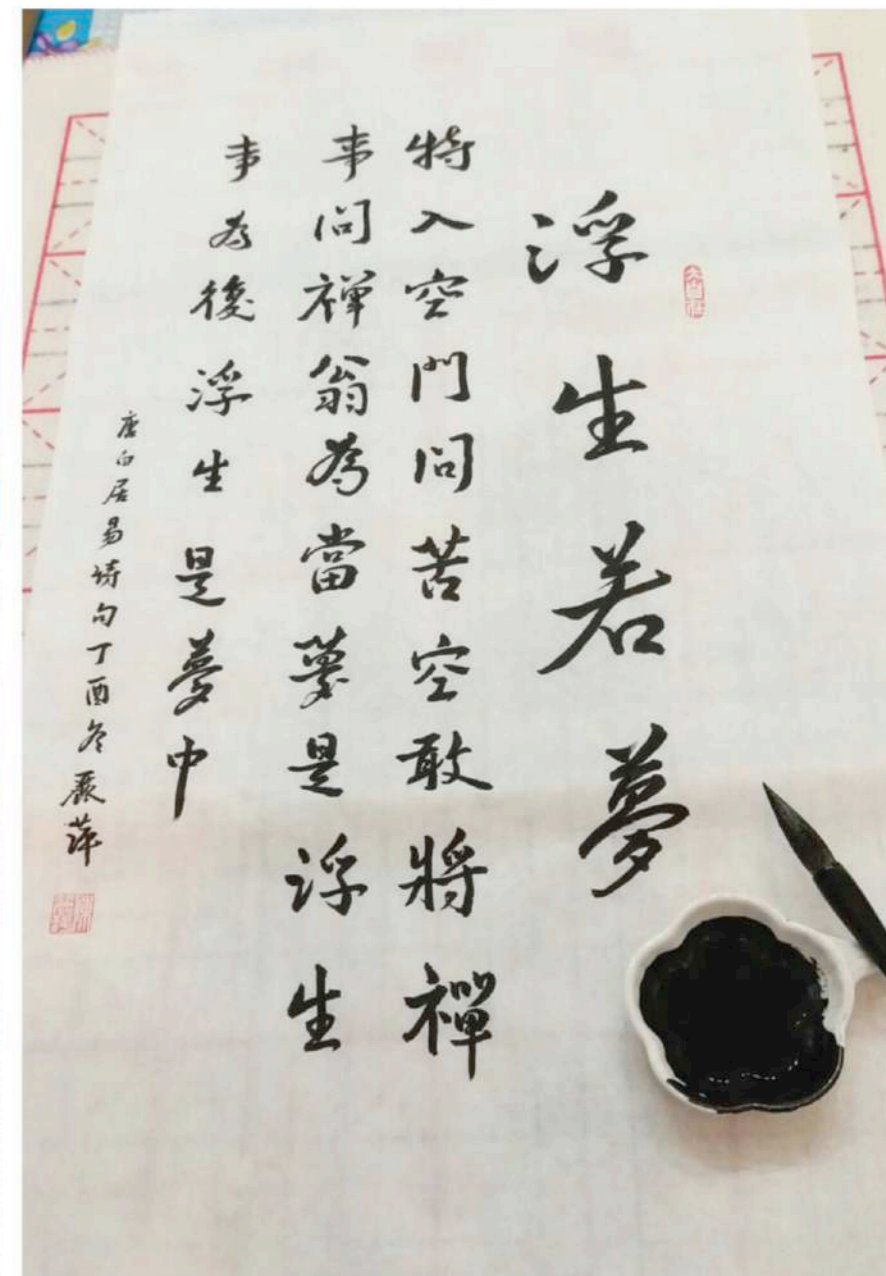 浮生若夢
特入空門問苦空敢將禪
事問禪翁為當夢是浮生
事為後浮生是夢中
唐白居易詩句丁酉冬嚴萍